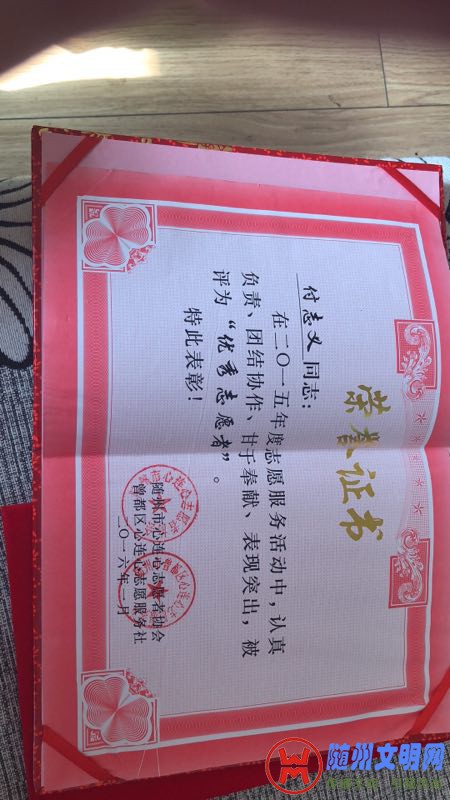 荣誉证书
付志义 同志：
在二〇一五年度志愿服务活动中，认真
负责、团结协作、甘于奉献、表现突出，被
评为“优秀志愿者”。
特此表彰！
随州市心连心志愿者协会
曾都区心连心志愿服务社
二〇一六年一月
随州文明网